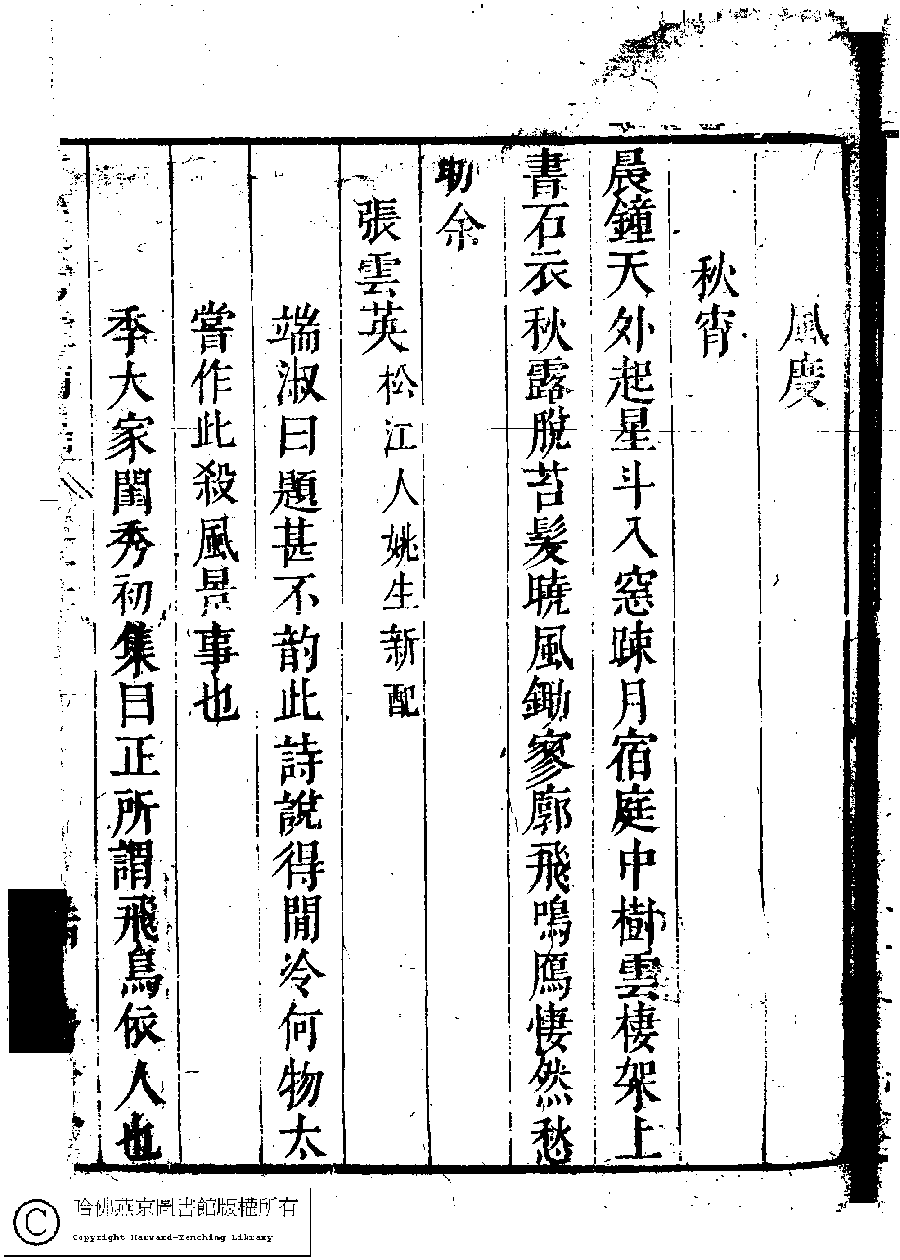 風度
秋宵
晨鐘天外起星斗入窓疎月宿庭中樹雲棲架上
書石衣秋露脫苔髮曉風鋤寥廓飛鳴鴈悽然愁
助余
張雲英松江人姚生新配
端淑曰題甚不韵此詩說得閒冷何物太
嘗作此殺風景事也
季大家閨秀初集目正所謂飛鳥依人也
哈佛燕京圖書館版權所有
Copyright Harvard-Yenching Library